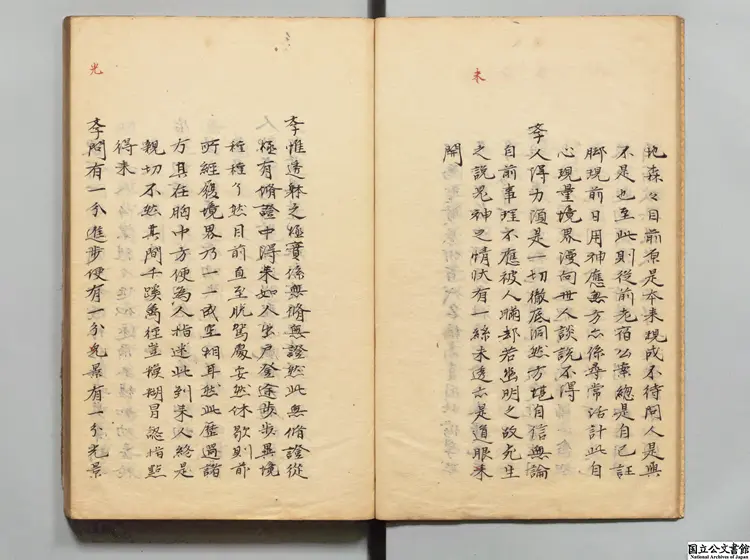 地森々目前原是本来現成不待問人是與
不是也至此則從前老宿公案總是自己註
脚現前日用神應無方亦係尋常活計此自
心現量境界漫向世人談說不得
李人得力須是一切徹底洞然方堪自信無論
目前事理不應被人瞞却若幽明之故死生
之說鬼神之情狀有一絲未透亦是道眼未
開
李惟透躰之極實係無脩無證然此無脩證從
極有脩證中得來如人出戶登途步步異境
種種了然目前直至脫駕處安然休歇則前
所經履境界乃一一成空相耳然此歷過諸
方具在胸中方便為人指迷此到來人終是
親切不然其間千蹊萬徑豈模糊冒認指點
得来
李問有一分進步便有一分光景有一分光景
未
光
国立公文書館
National Archives of Japan